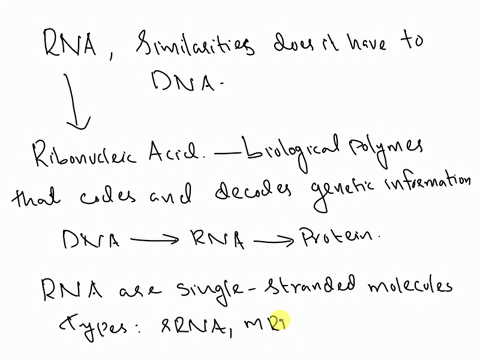 RNA, Similarities does it have to
DNA.
Ribonucleic Acid. — biological polymes
that codes and decodes genetic information
DNA → RNA → Protein.
RNA are single-stranded molecules
Types: rRNA, mR